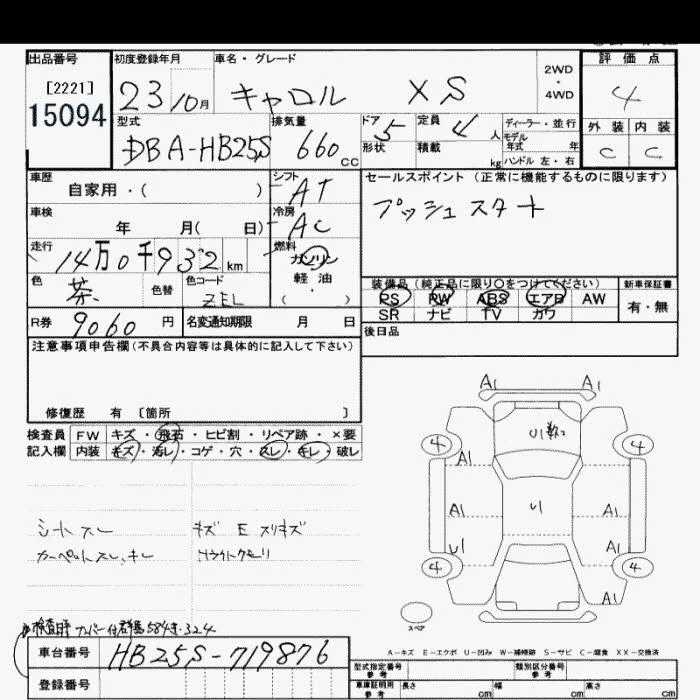 出品番号 初度登録年月 車名・グレード 2WD・4WD 評価点
[2221] 15094 23 10月 キャロル XS 4
型式 排気量 ドア 定員 ディーラー・並行 外装 内装
DBA-HB25S 660CC 5 4人 モデル年式 年 C C
形状 積載 kg ハンドル 左・右
車歴 シフト セールスポイント(正常に機能するものに限ります)
自家用・( ) AT プッシュスタート
車検 冷房
年 月( 日) AC
走行 燃料
14万0千932km ガソリン
軽油
( )
色 色替 色コード
茶 ZEL
装備品(純正品に限り○をつけてください) 新車保証書
PS PW ABS エアB AW 有・無
SR ナビ TV カワ
R券 9060円 名変通知期限 月 日 後日品
注意事項申告欄(不具合内容等は具体的に記入して下さい)
修復歴 有 〔箇所 〕
検査員 FW キズ・飛石・ヒビ割・リペア跡・×要
記入欄 内装 キズ・汚レ・コゲ・穴・スレ・キレ・破レ
シートスレ キズ E スリキズ
カーペットスレ、キレ
A1 A1
4 U1 4
A1
A1 U1 A1
U1 A1
4 4
スペア
検査時ナンバー付群馬584き・324
車台番号 HB25S-719876
登録番号
A-キズ E-エクボ U-凹み W-補修跡 S-サビ C-腐食 XX-交換済
型式指定番号 参考 類別区分番号 参考
車庫証明用 参考 長さ cm 幅 cm 高さ cm